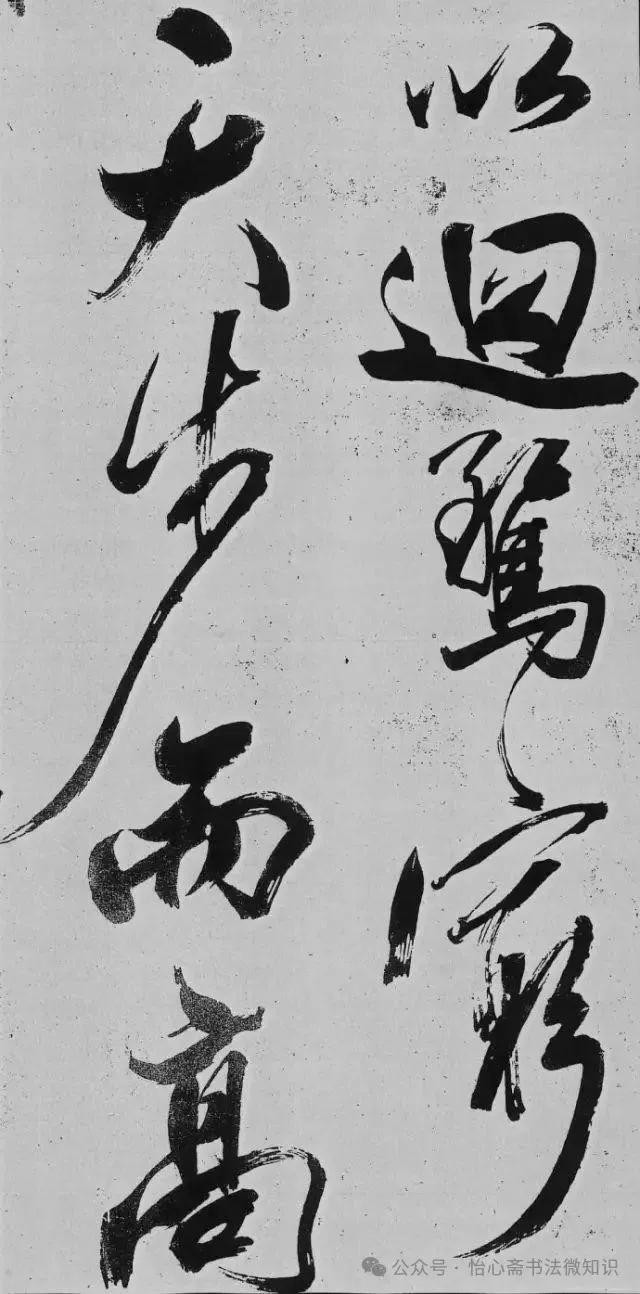 以迴騖窮
天步而高
公众号 · 怡心斋书法微知识